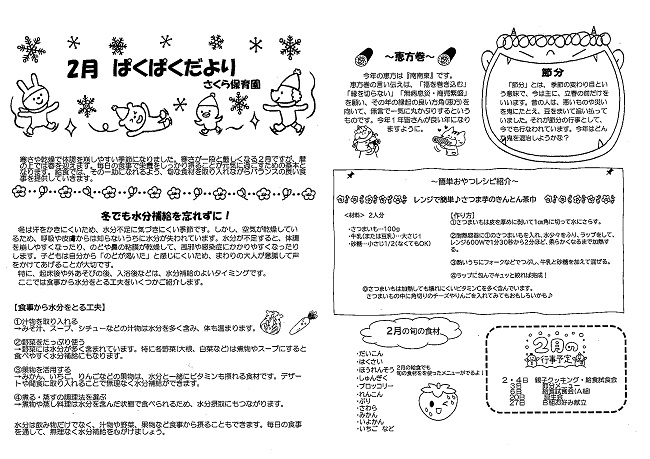 2月 ぱくぱくだより
さくら保育園
寒さや乾燥で体調を崩しやすい季節になりました。寒さが一段と厳しくなる2月ですが、暦
の上では春を迎えます。毎日の食事で栄養をしっかり摂ることが元気に過ごすための基本と
なります。給食では、その一助になれるよう、旬な食材を取り入れながらバランスの良い食
事を提供していきます。
冬でも水分補給を忘れずに！
冬は汗をかきにくいため、水分不足に気づきにくい季節です。しかし、空気が乾燥してい
るため、呼吸や皮膚からは知らないうちに水分が失われています。水分が不足すると、体調
を崩しやすくなったり、のどや鼻の粘膜が乾燥して、風邪や感染症にかかりやすくなったり
します。子どもは自分から「のどが渇いた」と感じにくいため、まわりの大人が意識して声
をかけてあげることが大切です。
特に、起床後や外あそびの後、入浴後などは、水分補給のよいタイミングです。
ここでは食事から水分をとる工夫をいくつかご紹介します。
【食事から水分をとる工夫】
①汁物を取り入れる
→みそ汁、スープ、シチューなどの汁物は水分を多く含み、体も温まります。
②野菜をたっぷり使う
→野菜には水分が多く含まれています。特に冬野菜(大根、白菜など)は煮物やスープにすると
食べやすく水分補給にもなります。
③果物を活用する
→みかん、いちご、りんごなどの果物は、水分と一緒にビタミンも摂れる食材です。デザー
トや間食に取り入れることで無理なく水分補給ができます。
④煮る・蒸すの調理法を選ぶ
→煮物や蒸し料理は水分を含んだ状態で食べられるため、水分摂取にもつながります。
水分は飲み物だけでなく、汁物や野菜、果物など食事から摂ることもできます。毎日の食事
を通して、無理なく水分補給を心がけましょう。
～恵方巻～
今年の恵方は『南南東』です。
恵方巻の言い伝えは、「福を巻き込む」
「縁を切らない」「無病息災・商売繁盛」
を願い、その年の縁起の良い方角(恵方)を
向いて、無言で一気に丸かぶりするという
ものです。今年１年皆さんが良い年になり
ますように。
節分
「節分」とは、季節の変わり目とい
う意味で、今は主に、立春の前だけを
いいます。昔の人は、悪いものや災い
を鬼にたとえ、豆をまいて追い払って
いました。それが節分の行事として、
今でも行なわれています。今年はどん
な鬼を退治しようかな？
～簡単おやつレシピ紹介～
レンジで簡単♪さつま芋のきんとん茶巾
<材料> 2人分
・さつまいも…100g
・牛乳(または豆乳)…大さじ1
・砂糖…小さじ1/2(なくてもOK)
【作り方】
①さつまいもは皮を厚めに剥いて1㎝角に切って水にさらす。
②耐熱皿にさつまいもを入れ、水少々をふり、ラップをして、
レンジ600Wで1分30秒から2分ほど、柔らかくなるまで加熱す
る。
③熱いうちにフォークなどでつぶし、牛乳と砂糖を加えて混ぜる。
④ラップに包んでキュッと絞れば完成！
さつまいもは加熱しても壊れにくいビタミンCを多く含んでいます。
さつまいもの中に角切りのチーズやりんごを入れてみてもおもしろいかも♪
2月の旬の食材
・だいこん
・はくさい
・ほうれんそう
・しゅんぎく
・ブロッコリー
・れんこん
・ぶり
・さわら
・みかん
・いよかん
・いちご など
2月の給食でも
旬の食材を使ったメニューがでるよ！
2月の
行事予定
2・4日 親子クッキング・給食試食会
3日 節分メニュー
20日 誕生会
27日 B組お好み献立